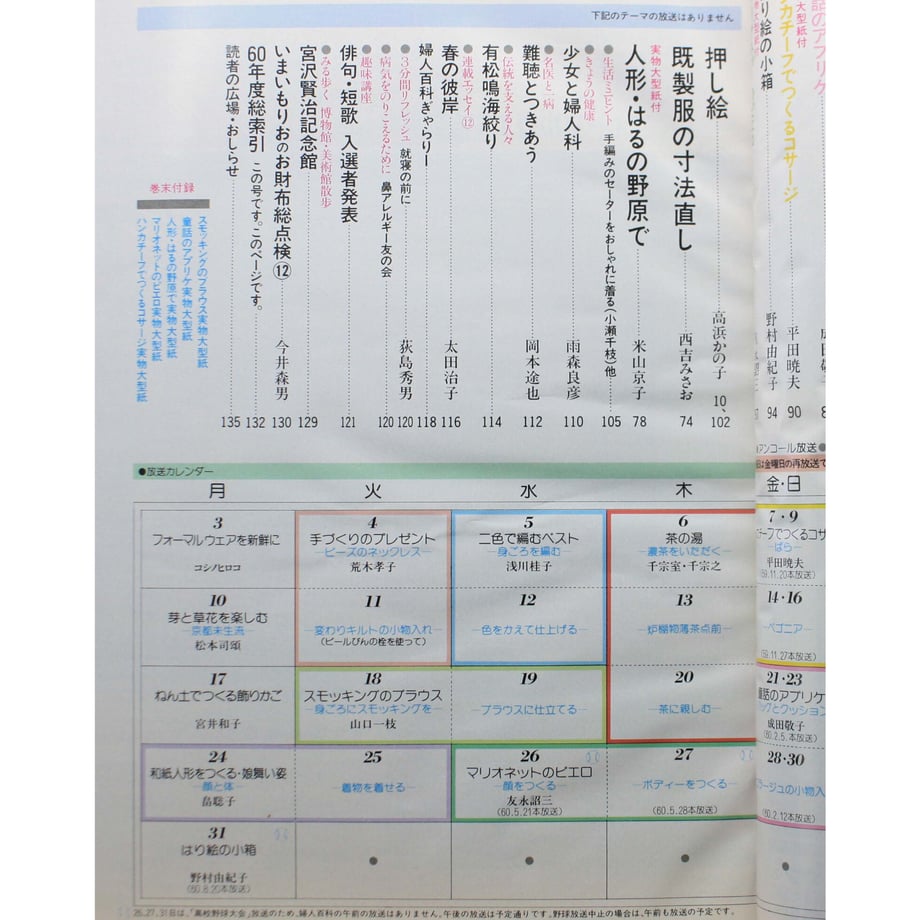 下記のテーマの放送はありません
はり絵の小箱
野村由紀子 94
ハンカチーフでつくるコサージ
平田暁夫 90
押し絵 高浜かの子 10、102
既製服の寸法直し 西吉みさお 74
実物大型紙付
人形・はるの野原で 米山京子 78
●生活ミニヒント 手編みのセーターをおしゃれに着る(小瀬千枝)他 105
●きょうの健康
少女と婦人科 雨森良彦 110
●名医と一病
難聴とつきあう 岡本途也 112
●伝統を支える人々
有松鳴海絞り 114
●連載エッセイ⑫
春の彼岸 太田治子 116
婦人百科ぎゃらりー 118
●3分間リフレッシュ 就寝の前に 荻島秀男 120
●病気をのりこえるために 鼻アレルギー友の会 120
●趣味講座
俳句・短歌 入選者発表 121
●みる歩く 博物館・美術館散歩
宮沢賢治記念館 129
いまいもりおのお財布総点検⑫ 今井森男 130
60年度総索引 この号です。このページです。 132
読者の広場・おしらせ 135
巻末付録
スモッキングのブラウス実物大型紙
童話のアプリケ実物大型紙
人形・はるの野原で実物大型紙
マリオネットのピエロ実物大型紙
ハンカチーフでつくるコサージ実物大型紙
アンコール放送●
●放送カレンダー
は金曜日の再放送で
月 火 水 木 金・日
3
フォーマルウェアを新鮮に
コシノヒロコ
4
手づくりのプレゼント
—ビーズのネックレス—
荒木孝子
5
二色で編むベスト
—身ごろを編む—
浅川桂子
6
茶の湯
—濃茶をいただく—
千宗室・千宗之
7・9
チーフでつくるコサ
—ばら—
平田暁夫
(59.11.20本放送)
10
芽と草花を楽しむ
—京都未生流—
松本司頌
11
—変わりキルトの小物入れ—
(ビールびんの栓を使って)
12
—色をかえて仕上げる—
13
—炉棚物薄茶点前—
14・16
—ベゴニア—
(59.11.27本放送)
17
ねん土でつくる飾りかご
宮井和子
18
スモッキングのブラウス
—身ごろにスモッキングを—
山口一枝
19
—ブラウスに仕立てる—
20
—茶に親しむ—
21・23
童話のアプリケ
ッグとクッション
成田敬子
(60.2.5.本放送)
24
和紙人形をつくる・娘舞い姿
—顔と体—
畠聡子
25
—着物を着せる—
26
マリオネットのピエロ
—顔をつくる—
友永詔三
(60.5.21本放送)
27
—ボディーをつくる—
(60.5.28本放送)
28・30
ラージュの小物入
(60.2.12本放送)
31
はり絵の小箱
野村由紀子
(60.8.20本放送)
26、27、31日は、「高校野球大会」放送のため、婦人百科の午前の放送はありません。午後の放送は予定通りです。野球放送中止の場合は、午前も放送の予定です。